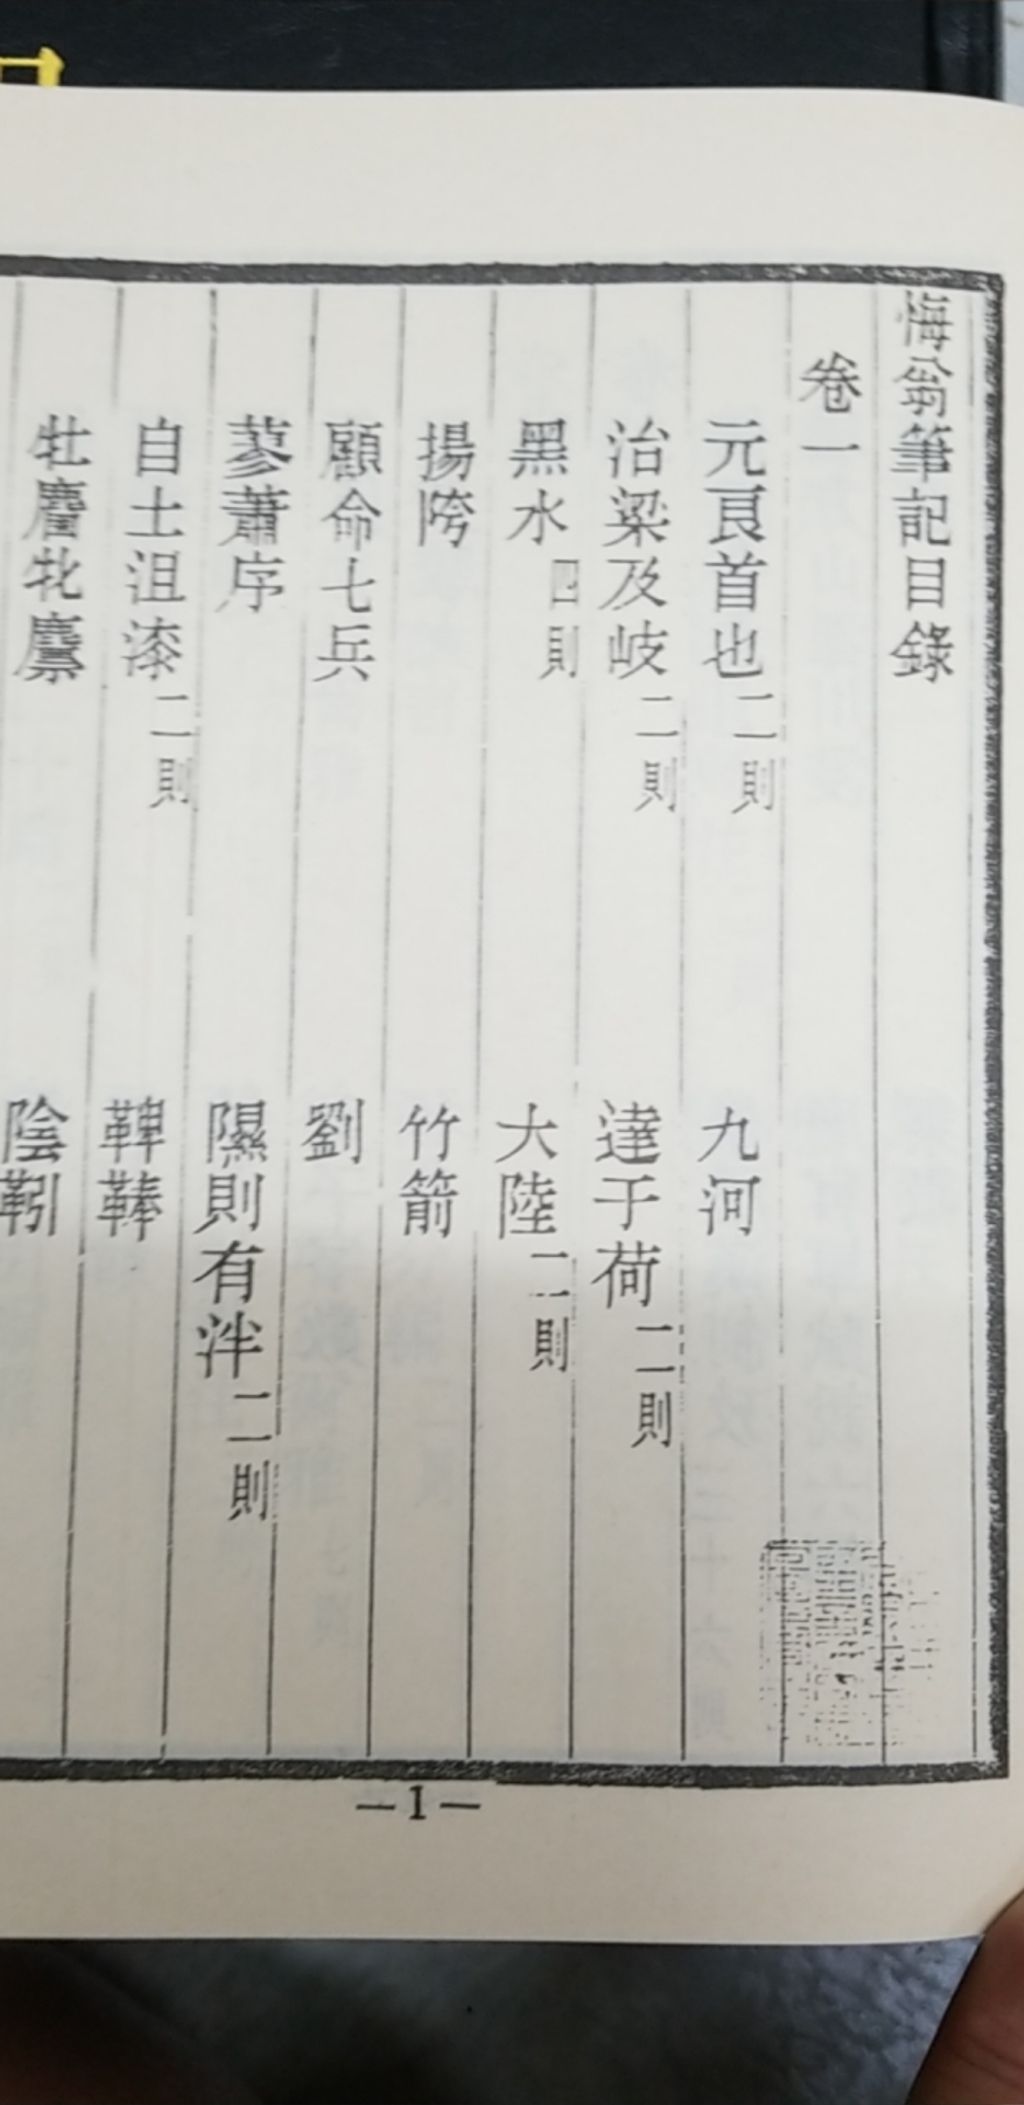 悔翁筆記目錄
卷一
元良首也二則 九河
治梁及岐二則 達于荷二則
黑水四則 大陸二則
揚 竹箭
顧命七兵 劉
蓼蕭序 隰則有泮二則
自土沮漆二則 鞞鞛
牡麿牝麜 陰靷
—1—